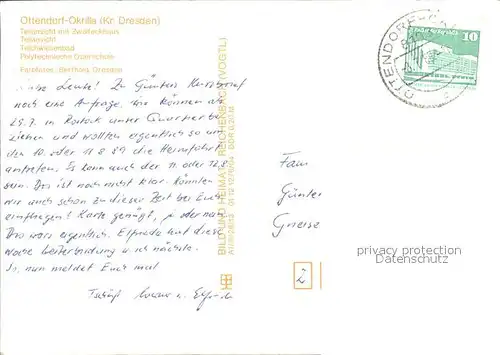 Ottendorf-Okrilla (Kr. Dresden)
Teilansicht mit Zweifachhaus
Teilansicht
Teichwiesenbad
Polytechnische Oberschule
Farbfotos: Berthold, Dresden
Liebe Leute! Zu Günters
noch eine Anfrage. Wir können ab
29.7. in Rostock unser Quartier be-
ziehen und wollten eigentlich so um
den 10. oder 11.8.89 die Heimfahrt
antreten. Es kann auch der 11. oder 12.8.
sein. Das ist noch nicht klar. Könnten
wir auch schon zu dieser Zeit bei Euch
eintreffen? Karte genügt, ja oder nein.
Das wars eigentlich. Elfriede hat diese
Woche Weiterbildung u. ich nächste.
So, nun meldet Euch mal
Tschüß u. Elfriede
BILD UND HEIMAT REICHENBACH (VOGTL)
Fam.
Günter
Gneise
OTTENDORF-OKRILLA
10
DDR
privacy protection
Datenschutz